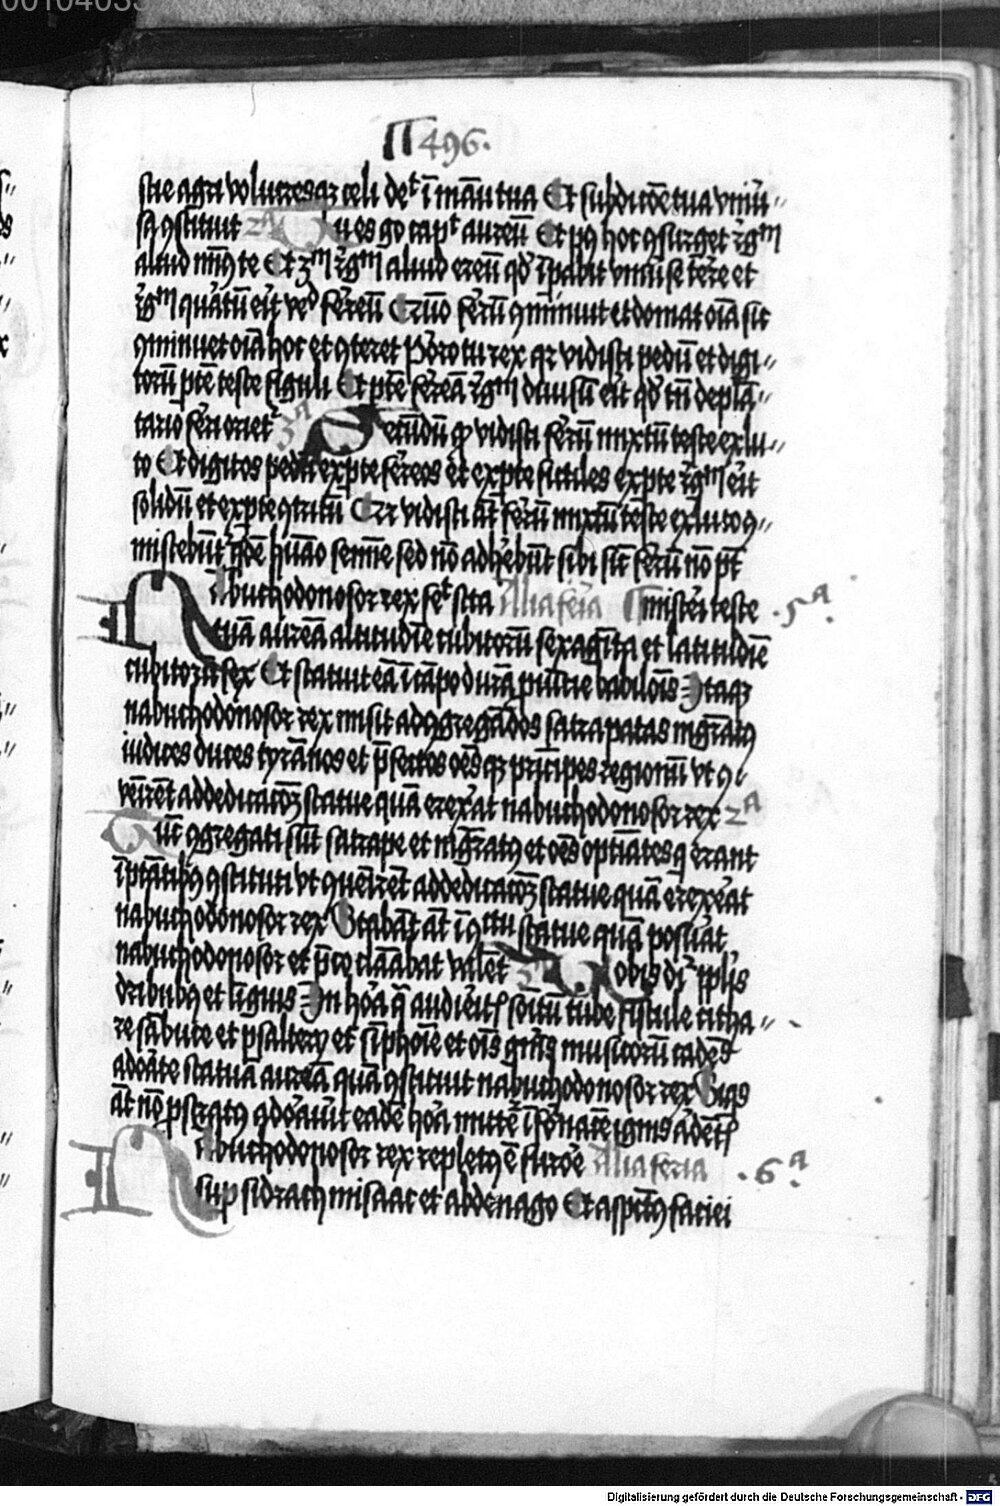 00104035
496.
stie agri volucresqz celi det̄ ī manu tua Et subdicōe tua vniū〃
sa ↄstituit 2ᴬ Tu es go capt̄ aureū Et pꝰ hoc ↄsurget rḡm
aliud minꝰ te Et 3m rḡm aliud ereū qd̄ īpabit vniūse tere et
rḡm quartū erit veld ferreū Et quo ferrū ↄminuit et domat oīa sic
ↄminuet oīa hoc et ↄteret Porro tu rex qz vidisti pedū et digi〃
torū ptē teste figuli Et ptē ferreā rḡm diuisū erit qd̄ tn̄ de plā〃
tario ferri oriet 3ᴬ Secūdū qꝫ vidisti ferrū mixtū teste ex lu〃
to Et digitos pedū ex pte ferreos et ex pte fictiles ex pte rḡm erit
solidū et ex pte ↄtritū Qz vidisti āt ferrū mixtū teste ex luto ↄ〃
miscebūt qdē huāo semīe sed nō adherebūt sibi sic̄ ferrū nō pt̄
Nabuchodonosor rex fec̄ sta Alia feria misceri teste .5ᴬ.
tuā aureā altitudīe cubitorū sexagīta et latitudīe
cubitorū sex Et statuit eā ī cāpo durā puīcie babilōis Itaqz
nabuchodonosor rex misit ad ↄgregādos satrapas mgr̄atꝰ
iudices duces tyrānos et p̄fectos oēs qz prīcipes regionū vt ↄ
venirēt ad dedicacōꝫ statue quā erexat nabuchodonosor rex 2ᴬ
Tūc ↄgregati sūt satrape et mgr̄atꝰ et oēs optīates q̄ erant
ī ptātibꝰ ↄstituti vt ↄuenirēt ad dedicacōꝫ statue quā erexeat
nabuchodonosor rex Stabāt āt ī ↄspectu statue quā posuāt
nabuchodonosor et p̄co clāabat valēt 3ᴬ Vobis dr̄ pplīs
tribubꝰ et līguis In hora q̄ audieitis sonitū tube fistule citha〃
re sābuce et psalterij et siphoīe et oīs gn̄is musicorū cadētes
adoāte statuā aureā quā ↄstituit nabuchodonosor rex Si qs
āt nō pstratꝰ adoauīt eadē hora mittet̄ ī fornacē ignis ardētis
Nabuchodonosor rex repletꝰ ē furōe Alia feria .6ᴬ.
sup sidrach misaac et abdenago Et aspctꝰ faciei
Digitalisierung gefördert durch die Deutsche Forschungsgemeinschaft - DFG